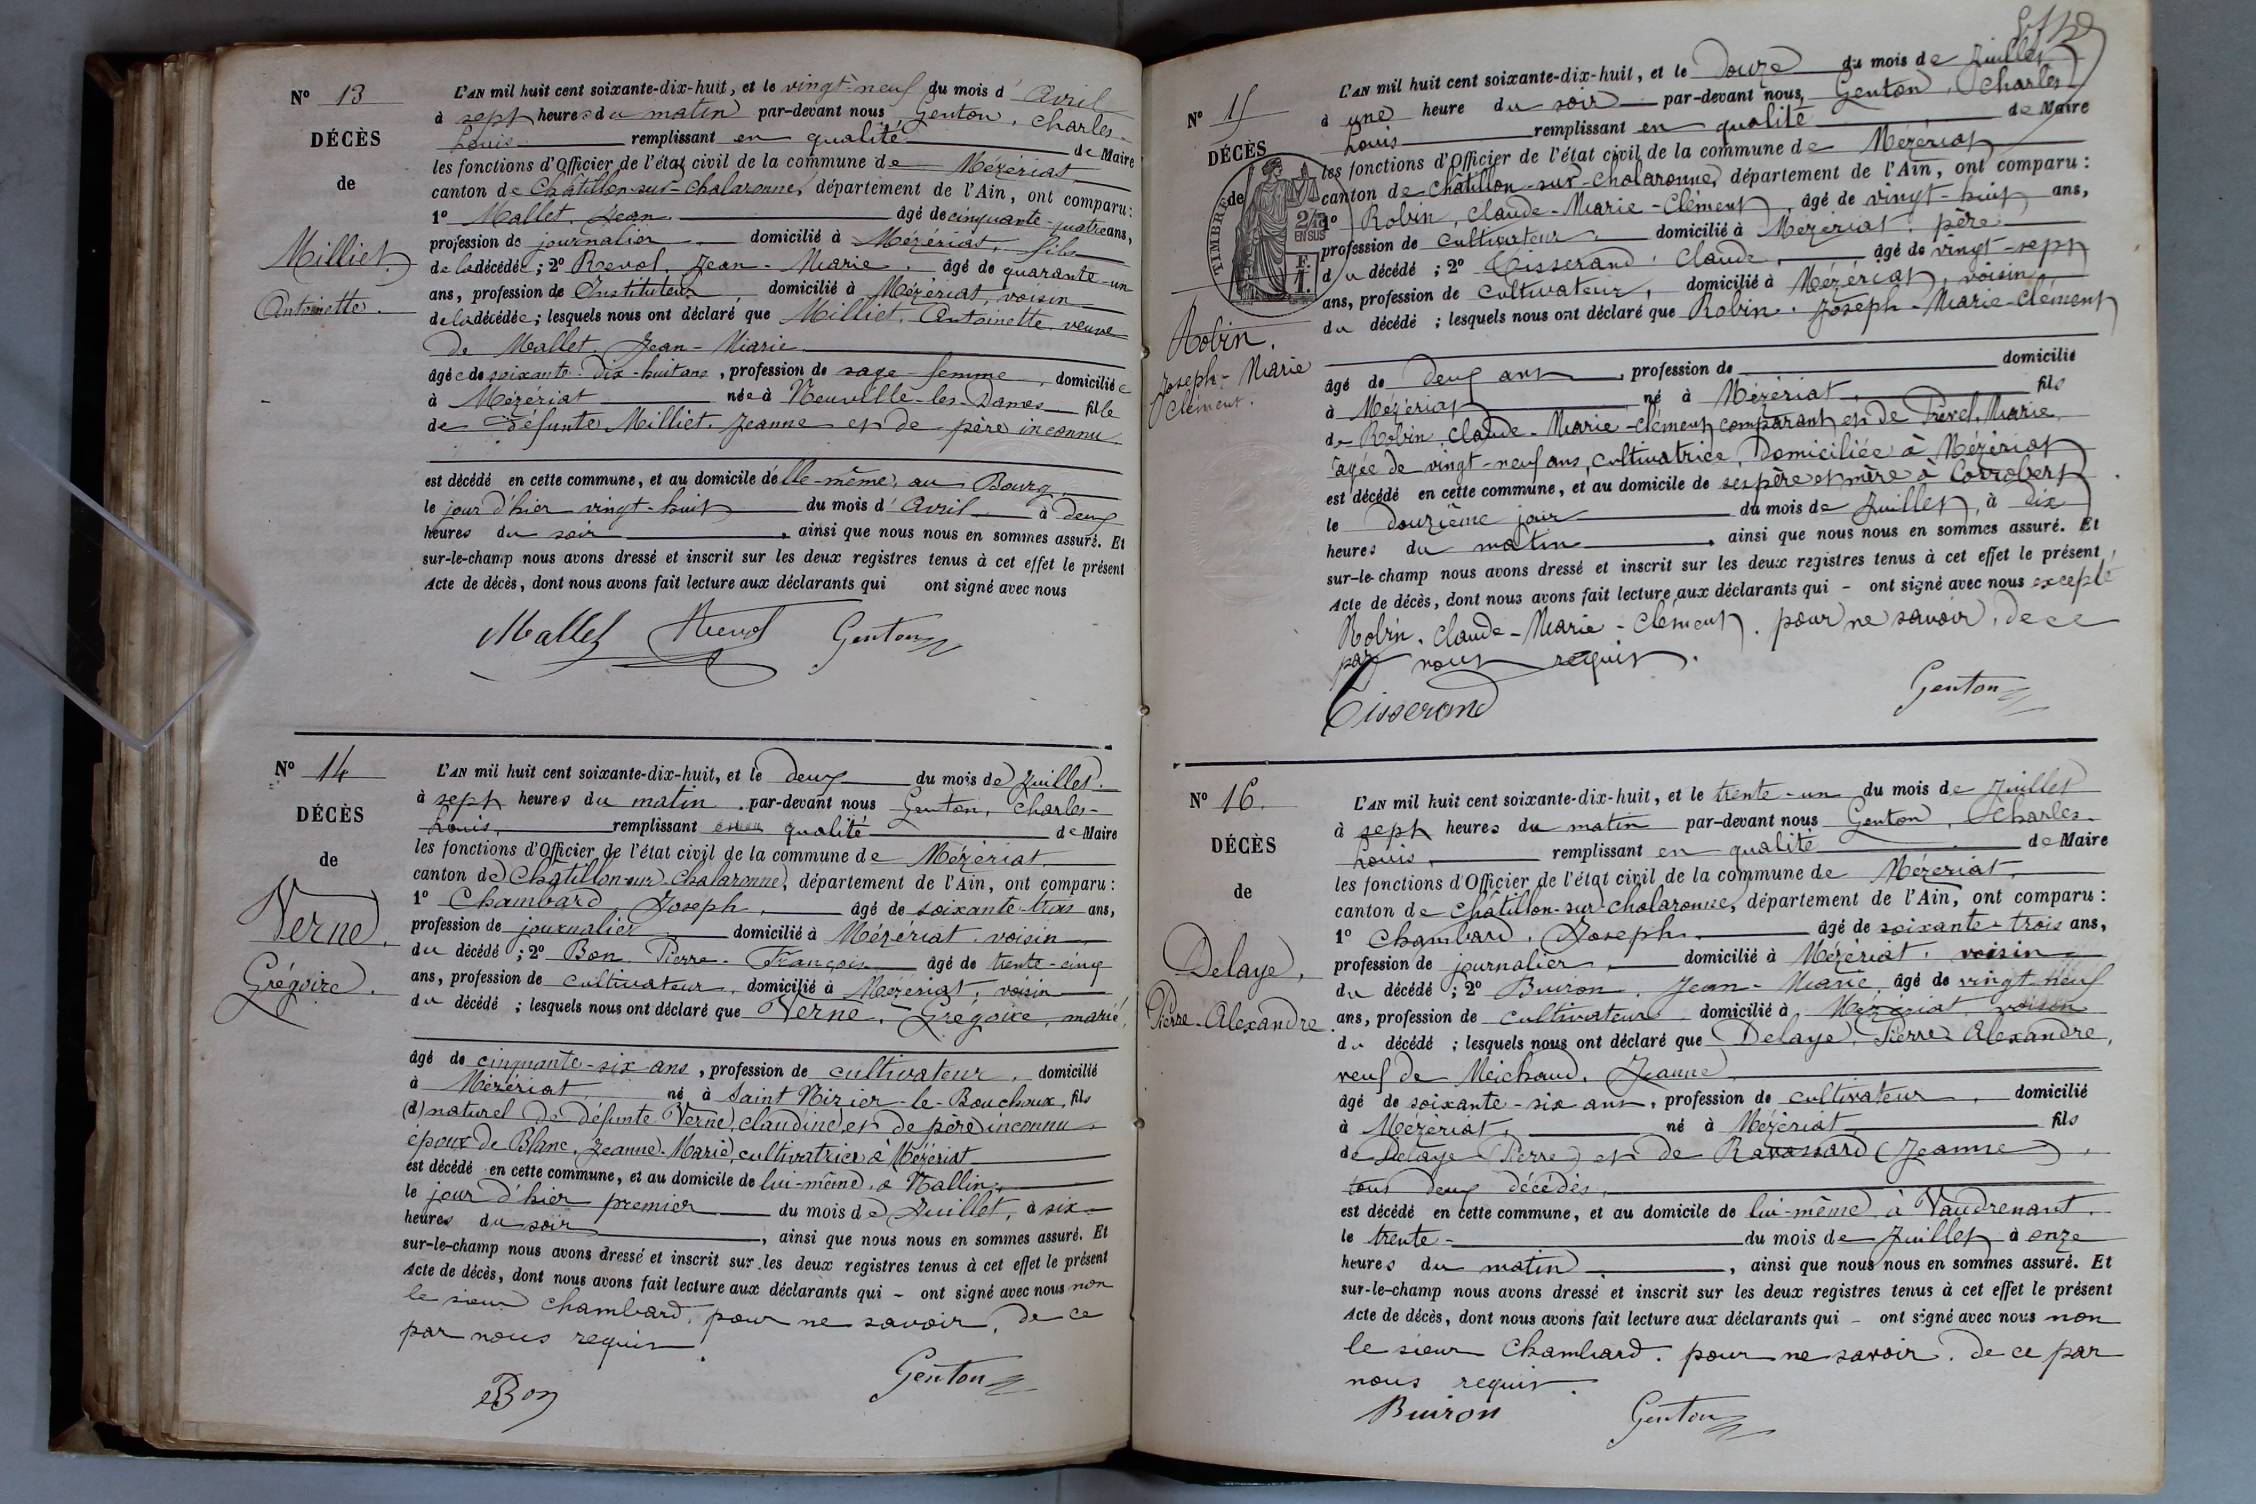 N° 13
DÉCÈS
de
Milliet,
Antoinette.
L'AN mil huit cent soixante-dix-huit, et le vingt-neuf du mois d'Avril
à sept heures du matin par-devant nous Genton, Charles-
Louis remplissant en qualité de Maire
les fonctions d'Officier de l'état civil de la commune de Mézériat
canton de Châtillon-sur-Chalaronne, département de l'Ain, ont comparu :
1° Mallet, Jean âgé de cinquante-quatre ans,
profession de journalier domicilié à Mézériat, fils
de la décédée ; 2° Revol, Jean-Marie, âgé de quarante-un
ans, profession de Instituteur domicilié à Mézériat, voisin
de la décédée ; lesquels nous ont déclaré que Milliet, Antoinette, veuve
de Mallet, Jean-Marie
âgée de soixante-dix-huit ans, profession de sage-femme, domiciliée
à Mézériat née à Neuville-les-Dames fille
de défunte Milliet, Jeanne et de père inconnu
est décédé en cette commune, et au domicile d'elle-même, au Bourg
le jour d'hier vingt-huit du mois d'Avril à deux
heures du soir, ainsi que nous nous en sommes assuré. Et
sur-le-champ nous avons dressé et inscrit sur les deux registres tenus à cet effet le présent
Acte de décès, dont nous avons fait lecture aux déclarants qui ont signé avec nous
Mallet Revol Genton
N° 14
DÉCÈS
de
Verne,
Grégoire.
L'AN mil huit cent soixante-dix-huit, et le deux du mois de Juillet.
à sept heures du matin par-devant nous Genton, Charles-
Louis, remplissant en qualité de Maire
les fonctions d'Officier de l'état civil de la commune de Mézériat
canton de Châtillon-sur-Chalaronne, département de l'Ain, ont comparu :
1° Chambard, Joseph, âgé de soixante-trois ans,
profession de journalier domicilié à Mézériat, voisin
du décédé ; 2° Bon, Pierre-François âgé de trente-cinq
ans, profession de cultivateur, domicilié à Mézériat, voisin
du décédé ; lesquels nous ont déclaré que Verne, Grégoire, marié,
âgé de cinquante-six ans, profession de cultivateur, domicilié
à Mézériat né à Saint Nizier-le-Bouchoux, fils
(d) naturel de défunte Verne, Claudine, et de père inconnu
époux de Blanc, Jeanne-Marie, cultivatrice à Mézériat
est décédé en cette commune, et au domicile de lui-même, à Vallin,
le jour d'hier premier du mois de Juillet, à six
heures du soir, ainsi que nous nous en sommes assuré. Et
sur-le-champ nous avons dressé et inscrit sur les deux registres tenus à cet effet le présent
Acte de décès, dont nous avons fait lecture aux déclarants qui - ont signé avec nous non
le sieur Chambard, pour ne savoir, de ce
par nous requis.
Bon Genton
N° 15
DÉCÈS
de
TIMBRE
2/10
EN SUS
F.
1.
Robin,
Joseph-Marie
Clément.
L'AN mil huit cent soixante-dix-huit, et le Douze du mois de Juillet
à une heure du soir par-devant nous, Genton, Charles
Louis remplissant en qualité de Maire
les fonctions d'Officier de l'état civil de la commune de Mézériat
canton de Châtillon-sur-Chalaronne, département de l'Ain, ont comparu :
1° Robin, Claude-Marie-Clément, âgé de vingt-huit ans,
profession de cultivateur, domicilié à Mézériat, père
du décédé ; 2° Tisserand, Claude, âgé de vingt-sept
ans, profession de cultivateur, domicilié à Mézériat, voisin
du décédé ; lesquels nous ont déclaré que Robin, Joseph-Marie-Clément
âgé de deux ans, profession de domicilié
à Mézériat né à Mézériat, fils
de Robin, Claude-Marie-Clément comparant et de Prevel, Marie,
âgée de vingt-neuf ans, cultivatrice, Domiciliée à Mézériat
est décédé en cette commune, et au domicile de ses père et mère à Corrobert
le Douzième jour du mois de Juillet, à dix
heures du matin, ainsi que nous nous en sommes assuré. Et
sur-le-champ nous avons dressé et inscrit sur les deux registres tenus à cet effet le présent
Acte de décès, dont nous avons fait lecture aux déclarants qui - ont signé avec nous excepté
Robin, Claude-Marie-Clément, pour ne savoir, de ce
par nous requis.
Tisserand Genton
N° 16.
DÉCÈS
de
Delaye,
Pierre-Alexandre.
L'AN mil huit cent soixante-dix-huit, et le trente-un du mois de Juillet
à sept heures du matin par-devant nous Genton, Charles-
Louis, remplissant en qualité de Maire
les fonctions d'Officier de l'état civil de la commune de Mézériat,
canton de Châtillon-sur-Chalaronne, département de l'Ain, ont comparu :
1° Chambard, Joseph, âgé de soixante-trois ans,
profession de journalier, domicilié à Mézériat, voisin
du décédé ; 2° Buiron, Jean-Marie, âgé de vingt-neuf
ans, profession de cultivateur, domicilié à Mézériat, voisin
du décédé ; lesquels nous ont déclaré que Delaye, Pierre Alexandre,
veuf de Meichaud, Jeanne
âgé de soixante-six ans, profession de cultivateur, domicilié
à Mézériat, né à Mézériat, fils
de Delaye (Pierre) et de Ravassard (Jeanne),
tous deux décédés,
est décédé en cette commune, et au domicile de lui-même à Vaudrenant,
le trente- du mois de Juillet à onze
heures du matin, ainsi que nous nous en sommes assuré. Et
sur-le-champ nous avons dressé et inscrit sur les deux registres tenus à cet effet le présent
Acte de décès, dont nous avons fait lecture aux déclarants qui - ont signé avec nous non
le sieur Chambard, pour ne savoir, de ce par
nous requis.
Buiron Genton